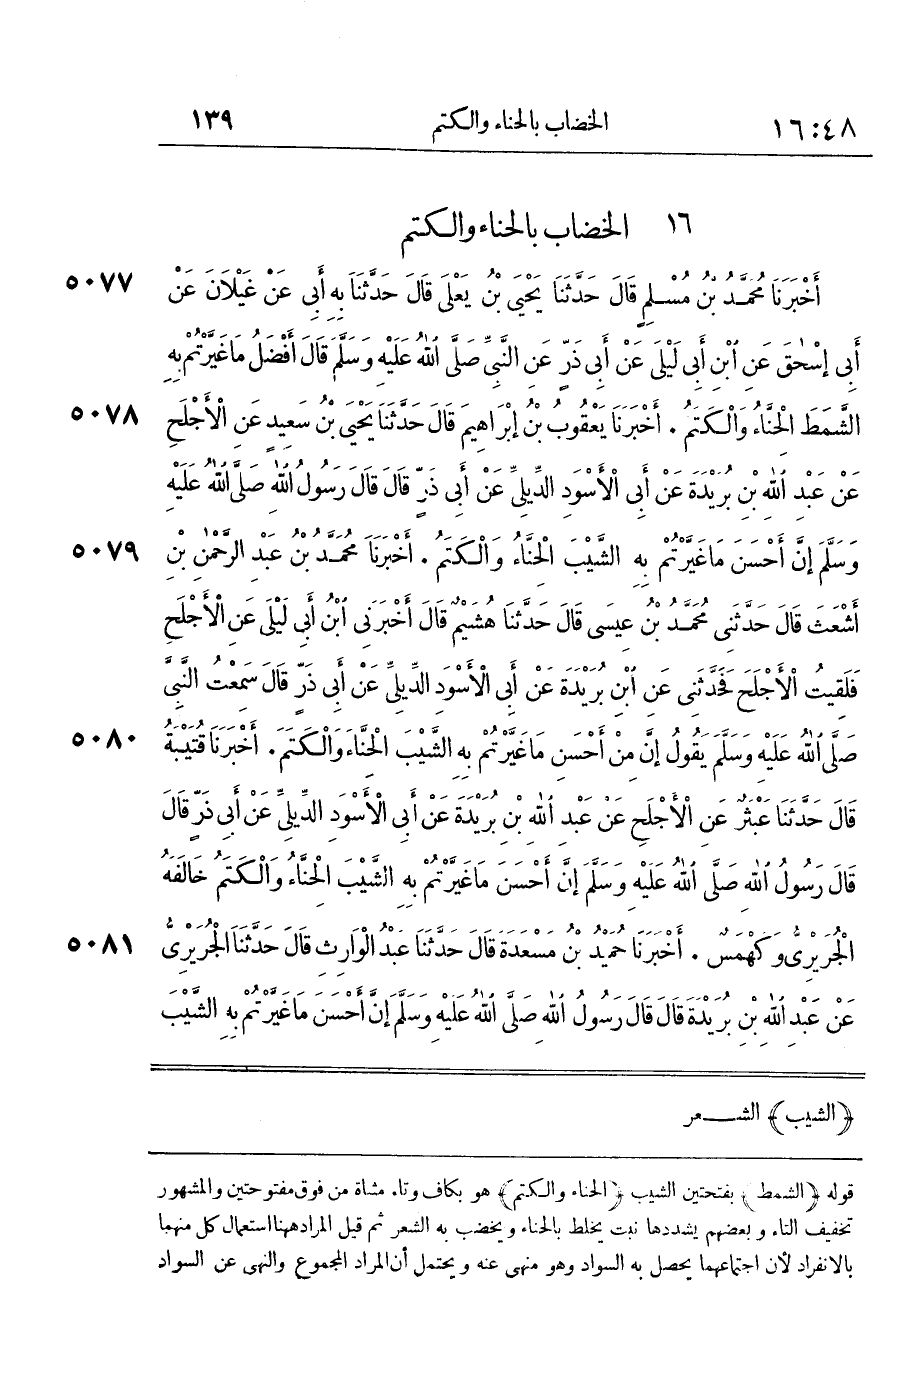 ١٦:٤٨ الخضاب بالحناء والكتم ١٣٩
١٦ الخضاب بالحناء والكتم
أَخْبَرَنَا مُحَمَّدُ بْنُ مُسْلِمٍ قَالَ حَدَّثَنَا يَحْيَى بْنُ يَعْلَى قَالَ حَدَّثَنَا بِهِ أَبِي عَنْ غَيْلَانَ عَنْ ٥٠٧٧
أَبِي إِسْحٰقَ عَنِ ابْنِ أَبِي لَيْلَى عَنْ أَبِي ذَرٍّ عَنِ النَّبِيِّ صَلَّى اللّٰهُ عَلَيْهِ وَسَلَّمَ قَالَ أَفْضَلُ مَا غَيَّرْتُمْ بِهِ
الشَّمَطَ الْحِنَّاءُ وَالْكَتَمُ . أَخْبَرَنَا يَعْقُوبُ بْنُ إِبْرَاهِيمَ قَالَ حَدَّثَنَا يَحْيَى بْنُ سَعِيدٍ عَنِ الْأَجْلَحِ ٥٠٧٨
عَنْ عَبْدِ اللّٰهِ بْنِ بُرَيْدَةَ عَنْ أَبِي الْأَسْوَدِ الدِّيلِيِّ عَنْ أَبِي ذَرٍّ قَالَ قَالَ رَسُولُ اللّٰهِ صَلَّى اللّٰهُ عَلَيْهِ
وَسَلَّمَ إِنَّ أَحْسَنَ مَا غَيَّرْتُمْ بِهِ الشَّيْبَ الْحِنَّاءُ وَالْكَتَمُ . أَخْبَرَنَا مُحَمَّدُ بْنُ عَبْدِ الرَّحْمٰنِ بْنِ ٥٠٧٩
أَشْعَثَ قَالَ حَدَّثَنِي مُحَمَّدُ بْنُ عِيسَى قَالَ حَدَّثَنَا هُشَيْمٌ قَالَ أَخْبَرَنِي ابْنُ أَبِي لَيْلَى عَنِ الْأَجْلَحِ
فَلَقِيتُ الْأَجْلَحَ فَحَدَّثَنِي عَنِ ابْنِ بُرَيْدَةَ عَنْ أَبِي الْأَسْوَدِ الدِّيلِيِّ عَنْ أَبِي ذَرٍّ قَالَ سَمِعْتُ النَّبِيَّ
صَلَّى اللّٰهُ عَلَيْهِ وَسَلَّمَ يَقُولُ إِنَّ مِنْ أَحْسَنِ مَا غَيَّرْتُمْ بِهِ الشَّيْبَ الْحِنَّاءَ وَالْكَتَمَ . أَخْبَرَنَا قُتَيْبَةُ ٥٠٨٠
قَالَ حَدَّثَنَا عَبْثَرٌ عَنِ الْأَجْلَحِ عَنْ عَبْدِ اللّٰهِ بْنِ بُرَيْدَةَ عَنْ أَبِي الْأَسْوَدِ الدِّيلِيِّ عَنْ أَبِي ذَرٍّ قَالَ
قَالَ رَسُولُ اللّٰهِ صَلَّى اللّٰهُ عَلَيْهِ وَسَلَّمَ إِنَّ أَحْسَنَ مَا غَيَّرْتُمْ بِهِ الشَّيْبَ الْحِنَّاءُ وَالْكَتَمُ خَالَفَهُ
الْجُرَيْرِيُّ وَكَهْمَسٌ . أَخْبَرَنَا حُمَيْدُ بْنُ مَسْعَدَةَ قَالَ حَدَّثَنَا عَبْدُ الْوَارِثِ قَالَ حَدَّثَنَا الْجُرَيْرِيُّ ٥٠٨١
عَنْ عَبْدِ اللّٰهِ بْنِ بُرَيْدَةَ قَالَ قَالَ رَسُولُ اللّٰهِ صَلَّى اللّٰهُ عَلَيْهِ وَسَلَّمَ إِنَّ أَحْسَنَ مَا غَيَّرْتُمْ بِهِ الشَّيْبَ
﴿الشيب﴾ الشعر
قوله ﴿الشمط﴾ بفتحتين الشيب ﴿الحناء والكتم﴾ هو بكاف وتاء مثناة من فوق مفتوحتين والمشهور
تخفيف التاء وبعضهم يشددها نبت يخلط بالحناء ويخضب به الشعر ثم قيل المراد ههنا استعمال كل منهما
بالانفراد لأن اجتماعهما يحصل به السواد وهو منهى عنه ويحتمل أن المراد المجموع والنهى عن السواد